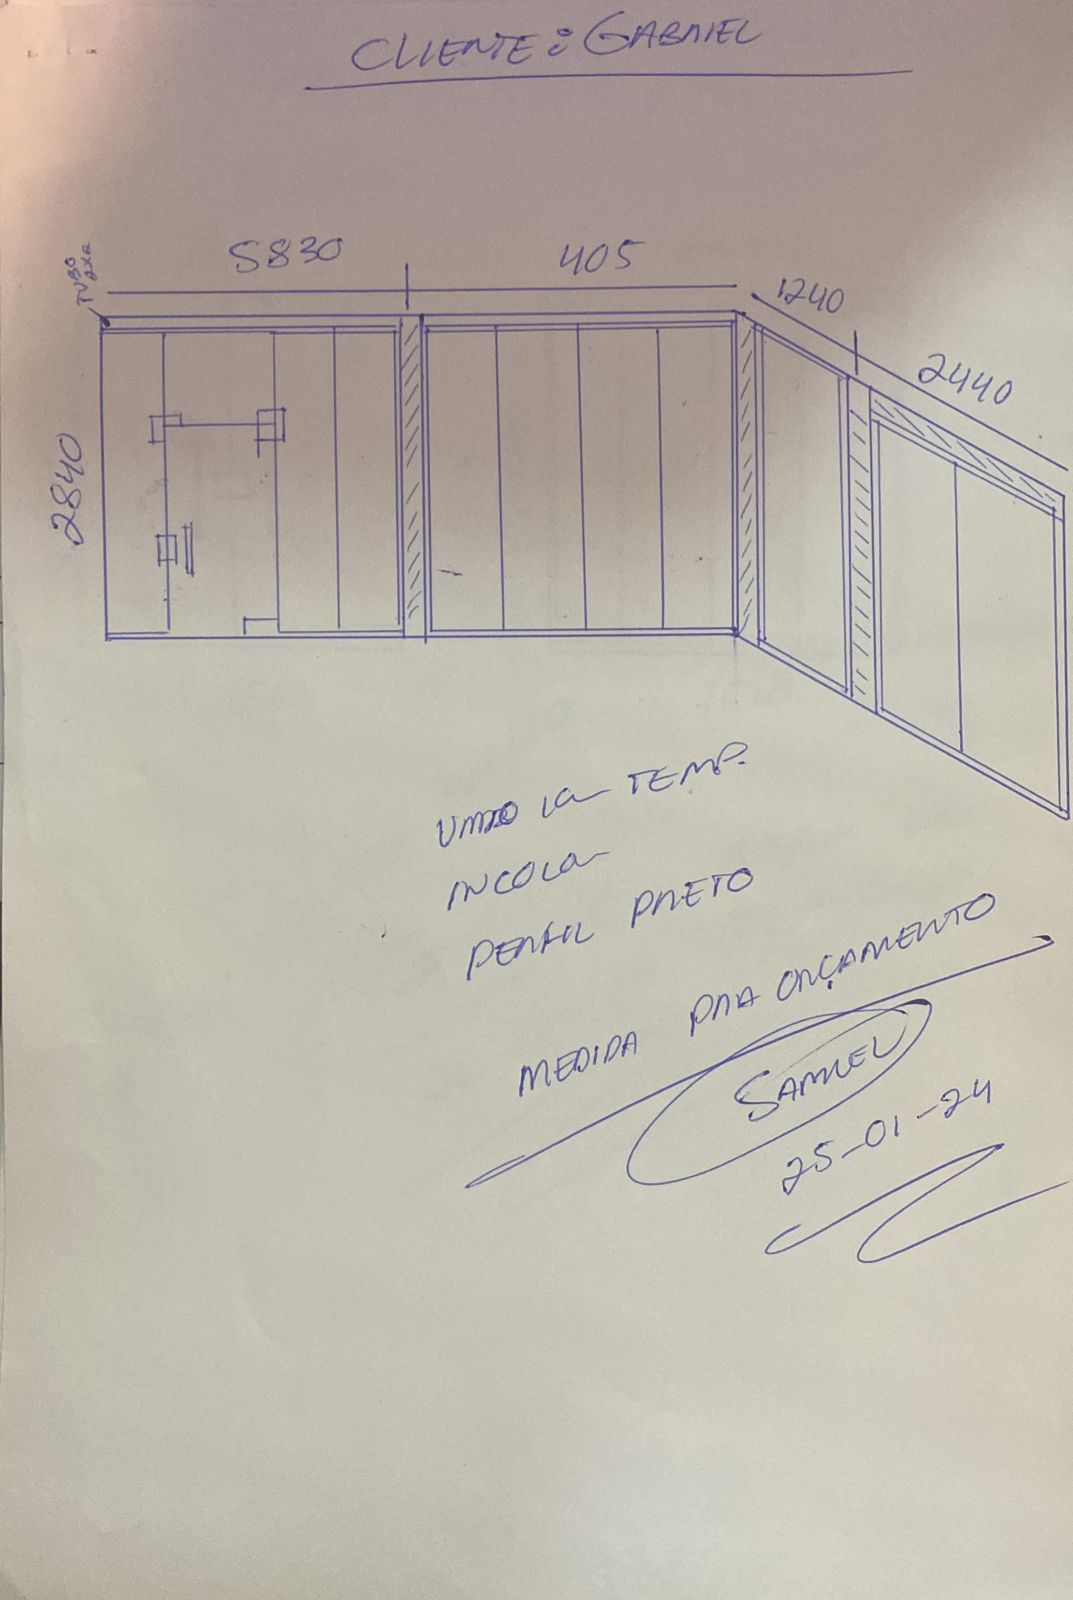 CLIENTE: GABRIEL
TUBO
2x2
5830
405
1240
2440
2840
VIDRO 10mm TEMP.
INCOLOR
PERFIL PRETO
MEDIDA PRA ORÇAMENTO
SAMUEL
25-01-24